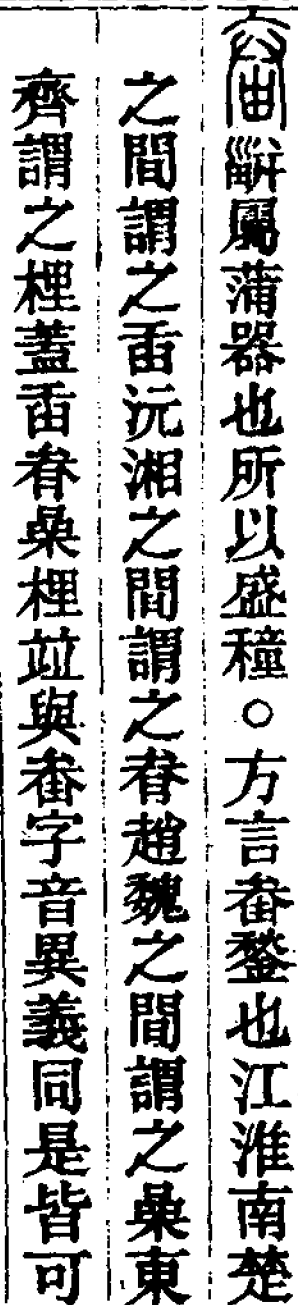 屬蒲器也所以盛穜○方言畚鍫也江淮南楚
之間謂之臿沅湘之間謂之畚趙魏之間謂之喿東
齊謂之梩蓋臿畚喿梩竝與畚字音異義同是皆可